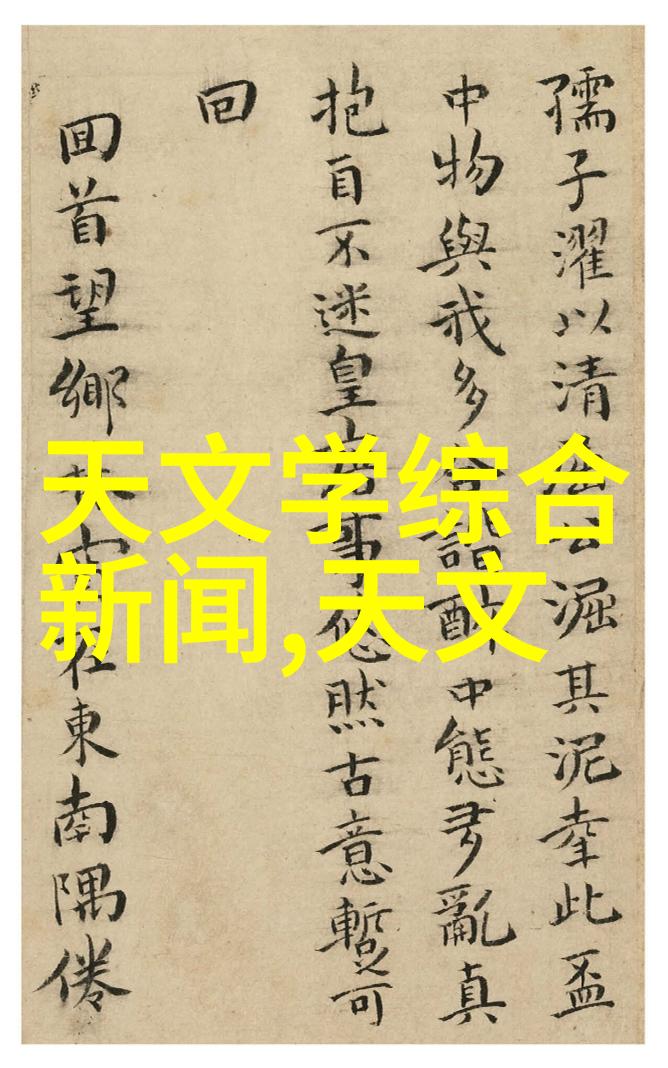 孺子濯以清公淈其泥幸此盃
中物與我多諧中態多亂真
抱自不迷皇事悠然古意暫可
回
囬首望鄉在東南隅倦
天文学综合
新闻,天文